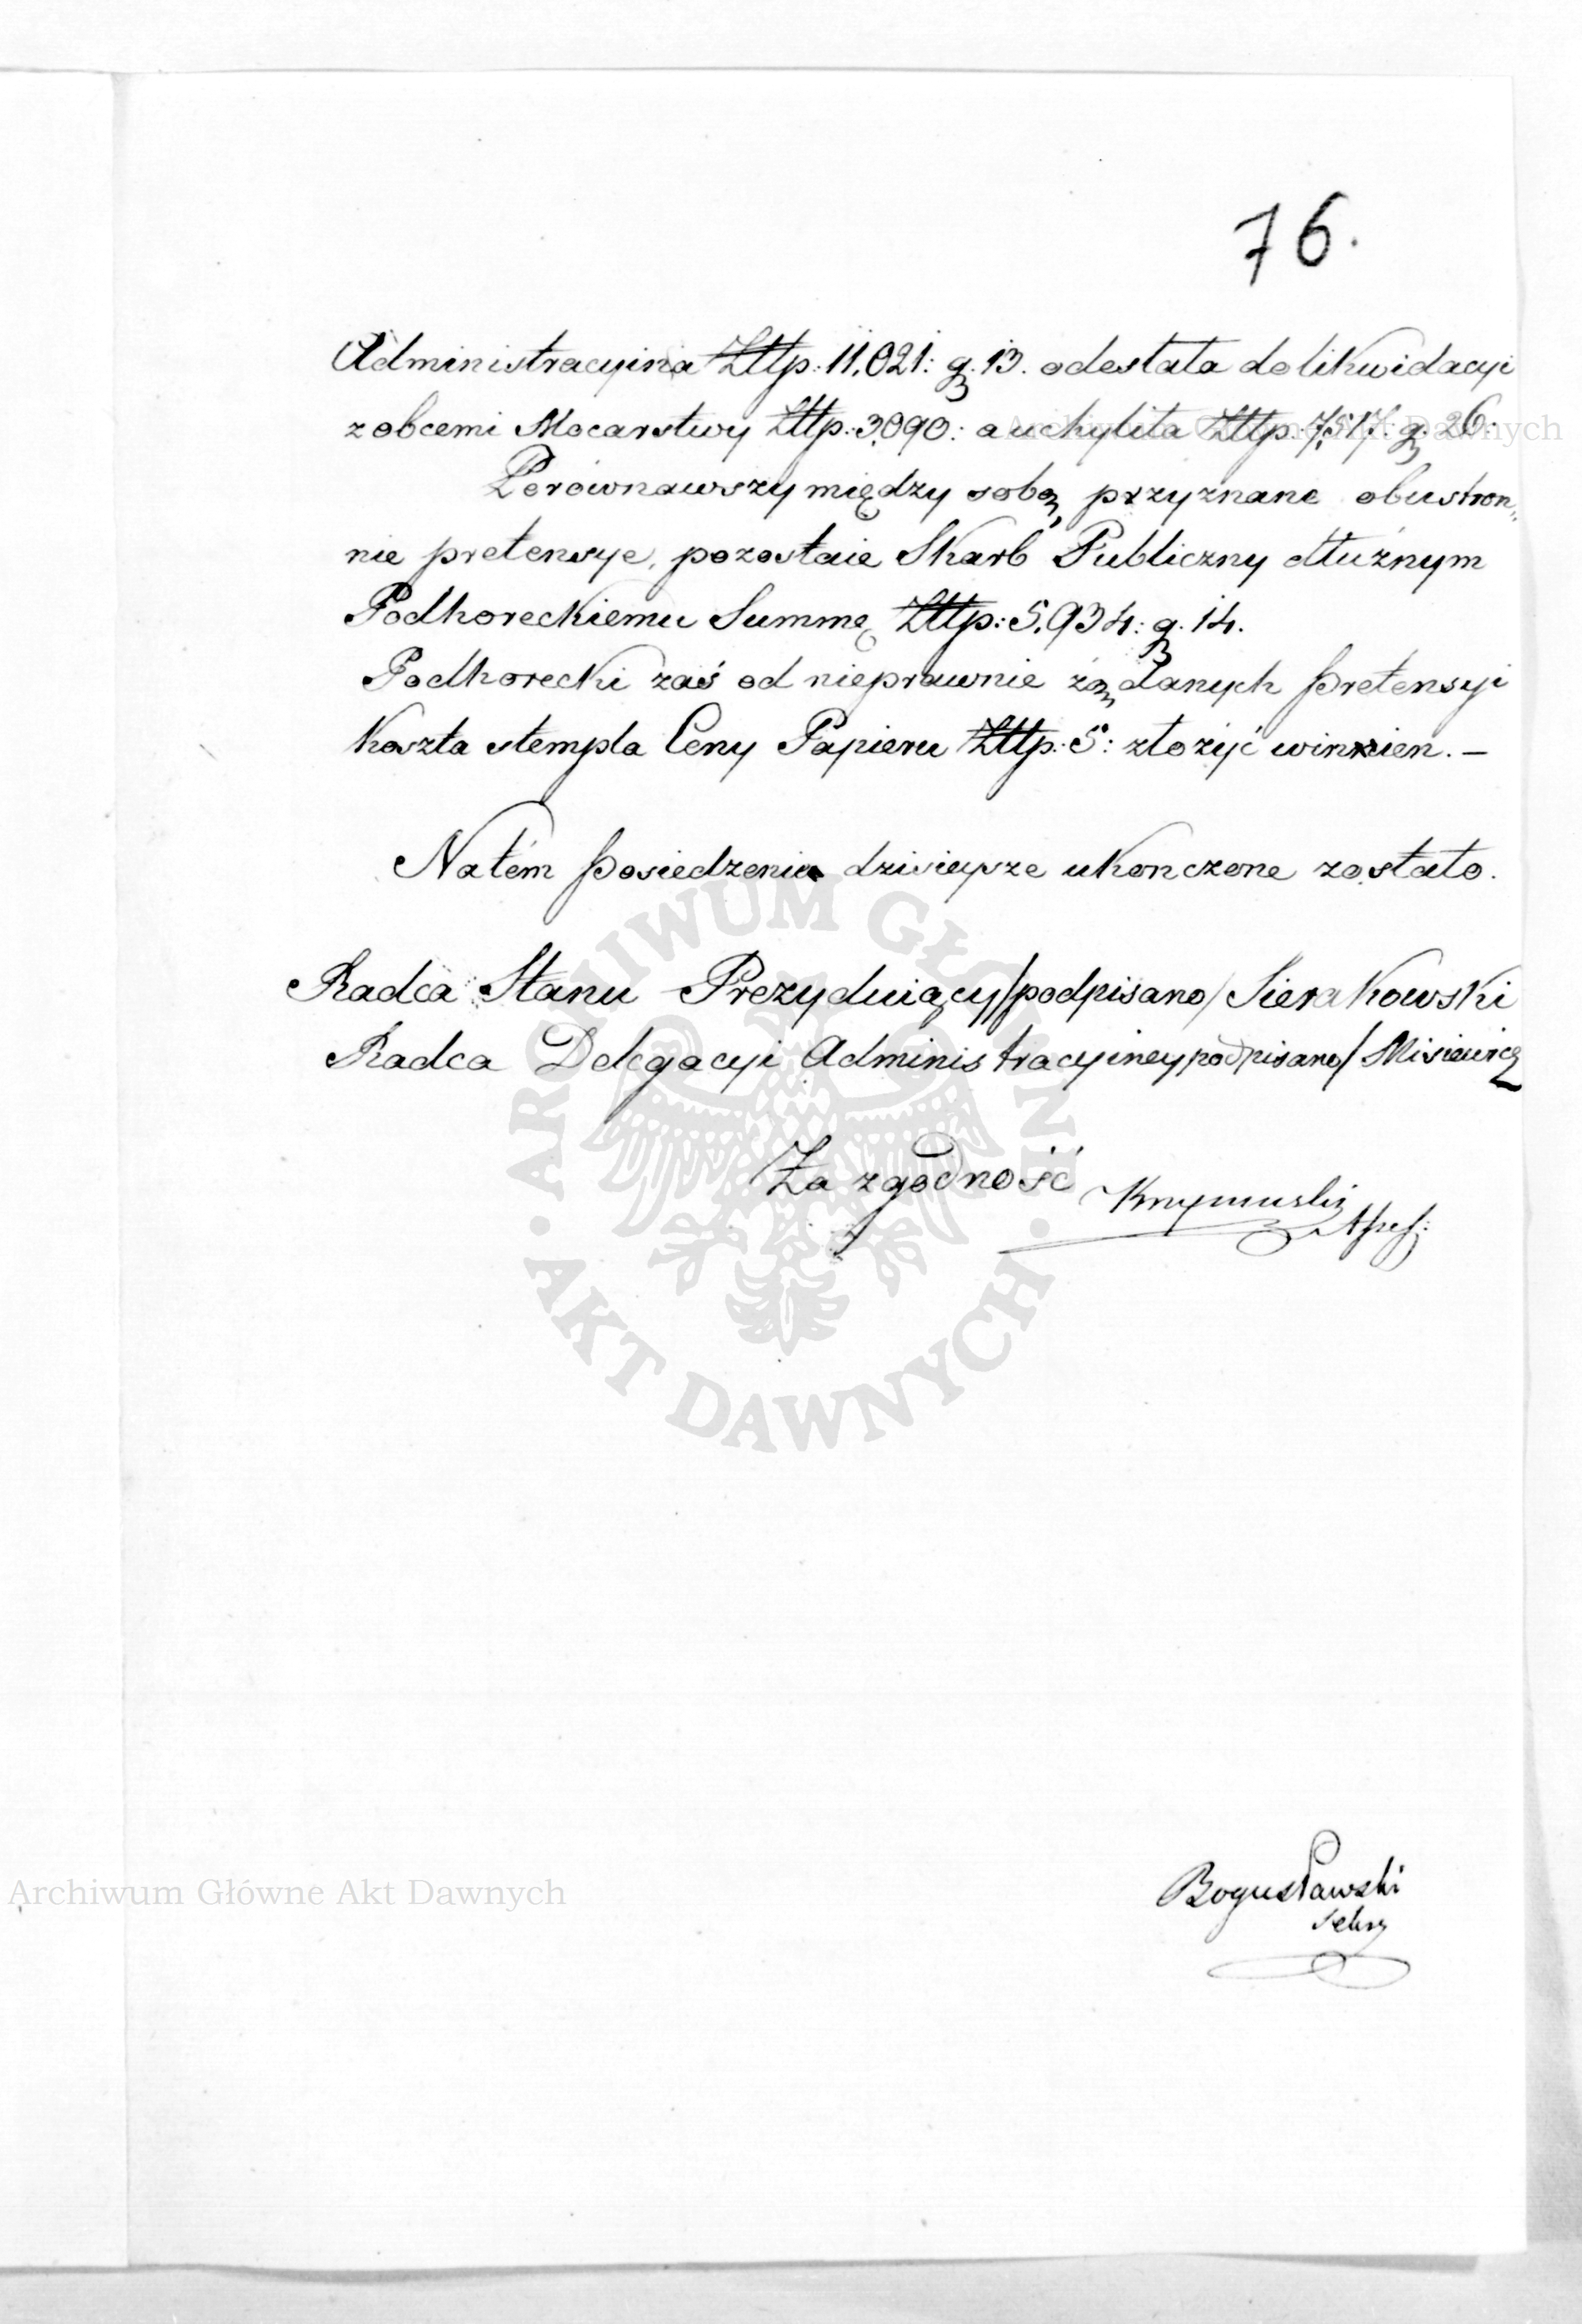 76.
Administracyina Złłp: 11,021: g. 13. odesłała do likwidacyi
z obcemi Mocarstwy Złłp: 3,090: a uchyliła Złłp. 7,517: g. 26.
Porównawszy między sobą przyznane obustron„
nie pretensye, pozostaie Skarb Publiczny dłużnym
Podhoreckiemu Summę Złłp: 5,934: g. 14.
Podhorecki zaś od nieprawnie żądanych pretensyi
koszta stempla Ceny Papieru Złłp: 5: złożyć winnien. —
Na tém posiedzenie dzisieysze ukonczone zostało.
Radca Stanu Prezyduiący /podpisano/ Sierakowski
Radca Delegacyi Administracyiney /podpisano/ Misiewicz
Za zgodność
Bogusławski
Sekrz
ARCHIWUM GŁÓWNE
AKT DAWNYCH
Archiwum Główne Akt Dawnych
Archiwum Główne Akt Dawnych